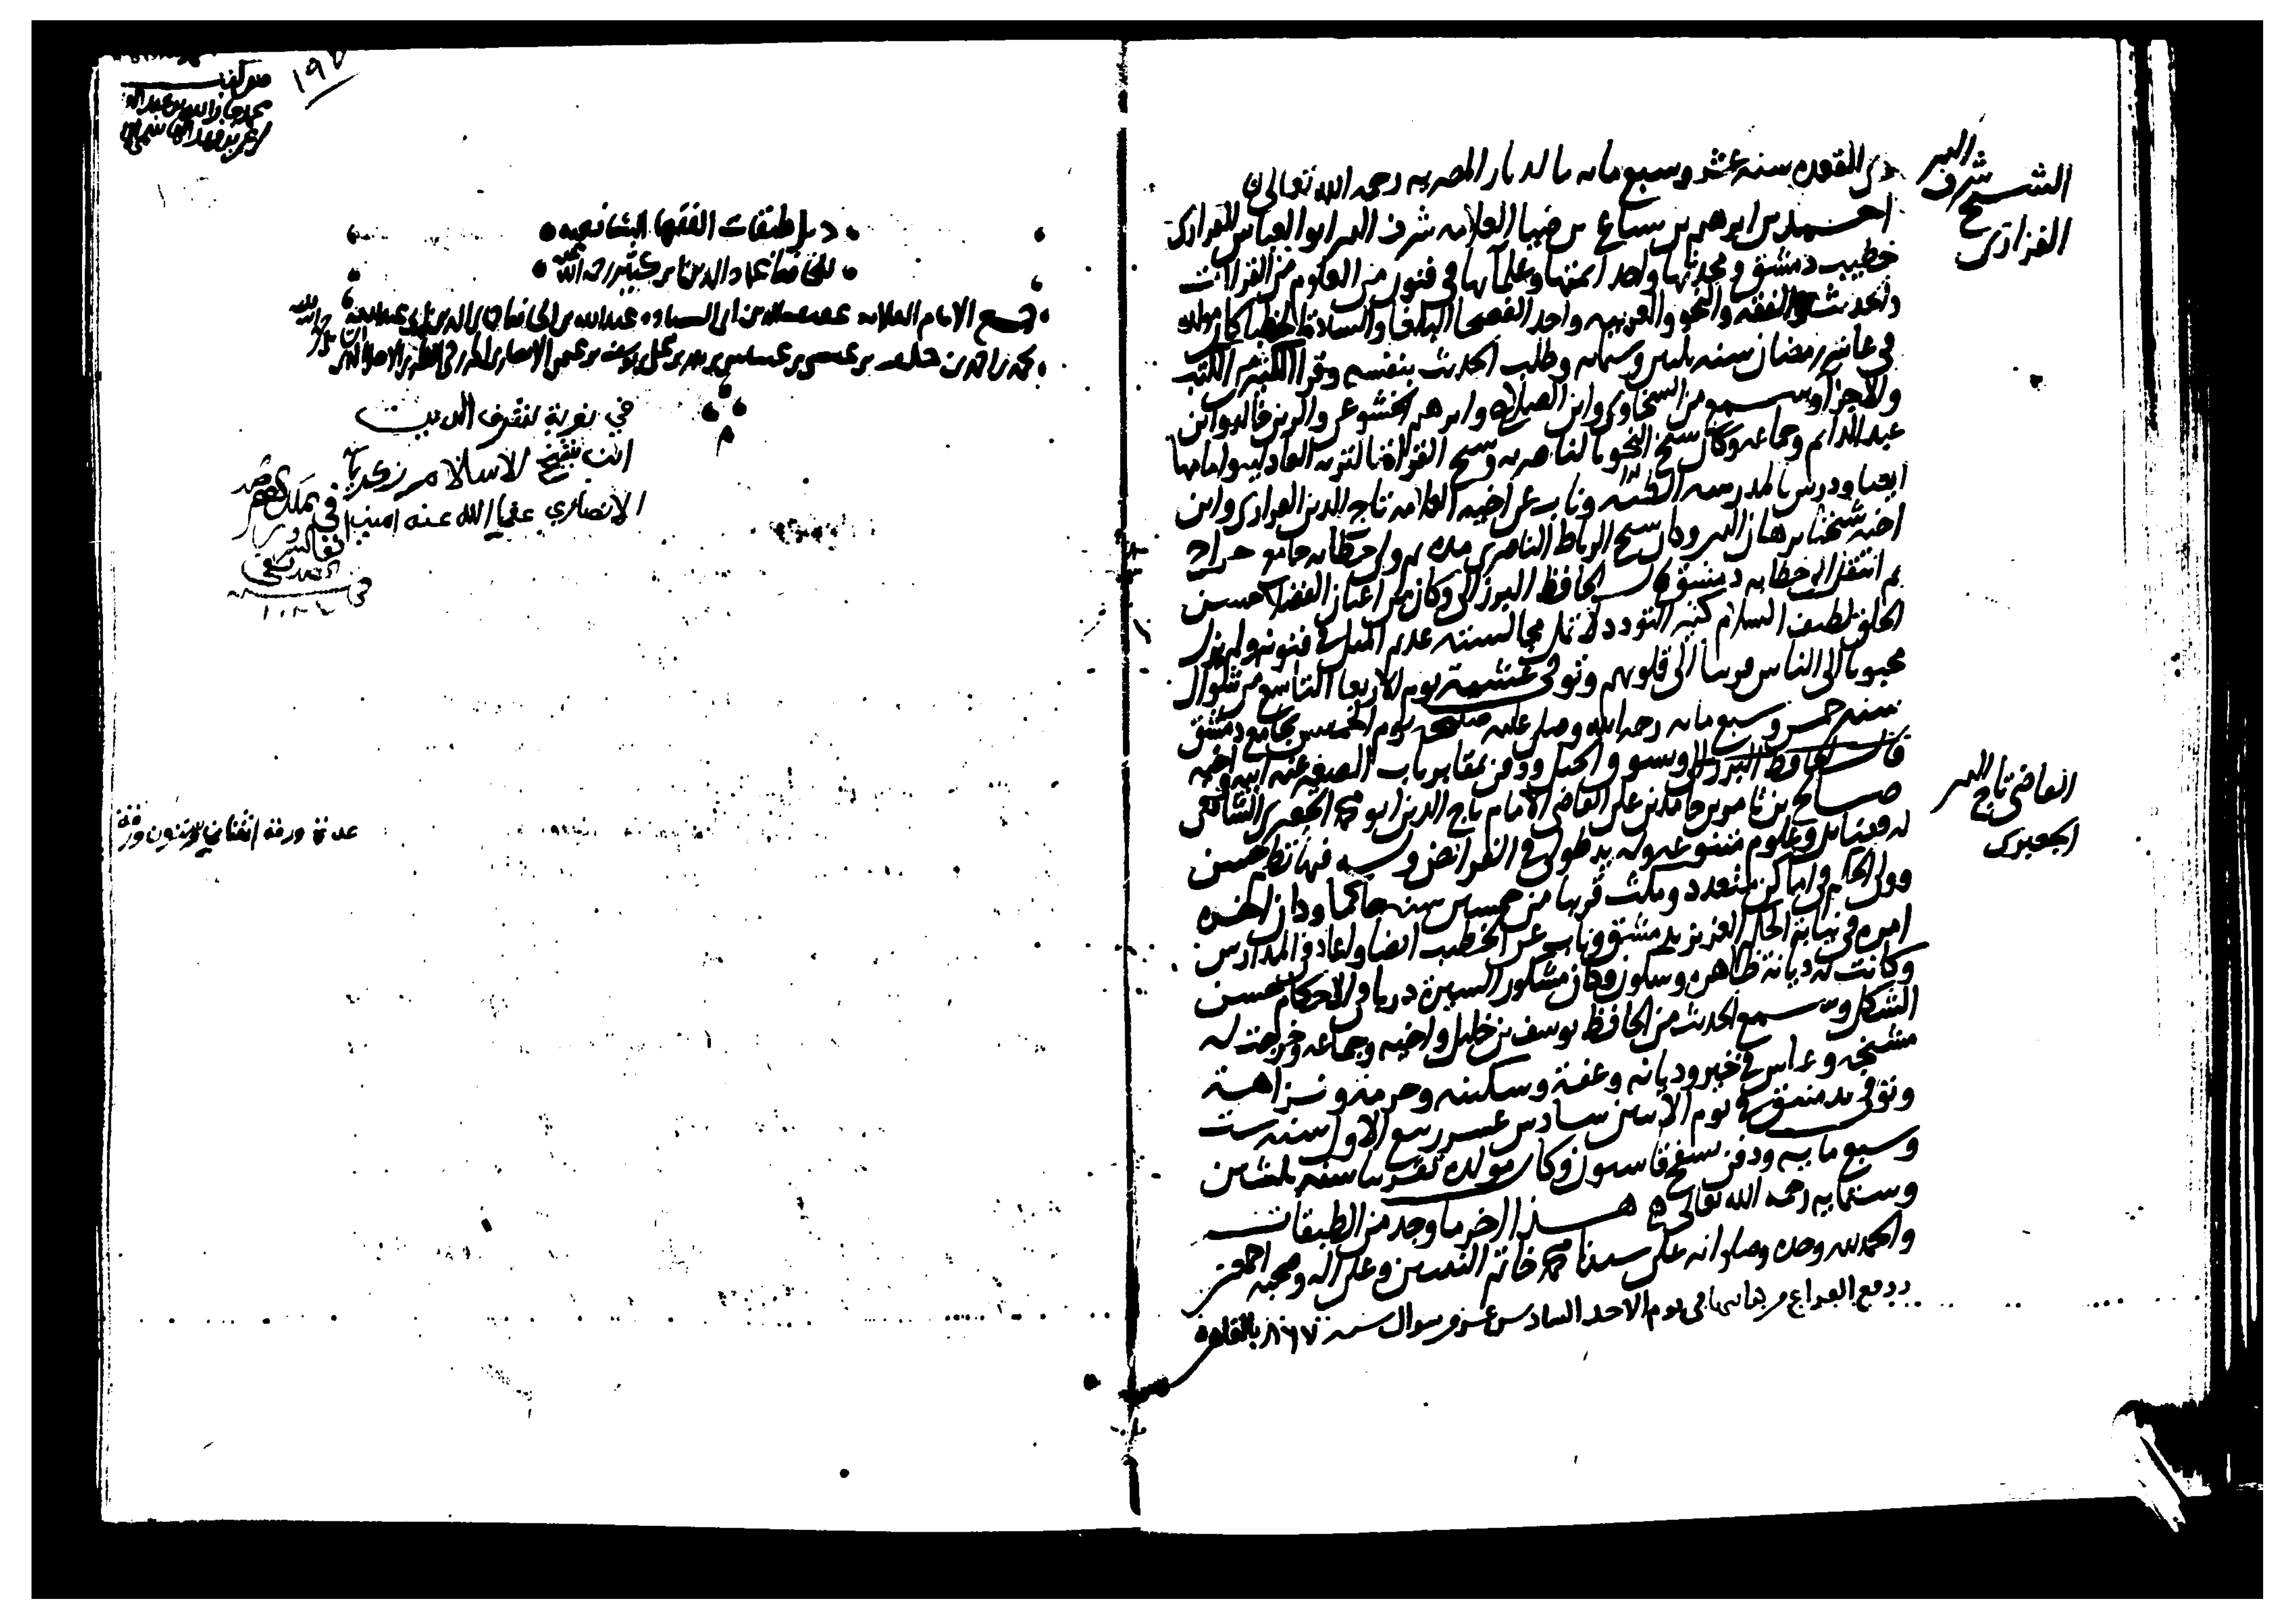 ذي القعده سنه عشر وسبع مايه بالديار المصريه رحمه الله تعالى
الشيخ شرف الدين
الفزاري
احمد بن ابرهيم بن سباع بن ضيا العلامه شرف الدين ابو العباس الفزاري
خطيب دمشق ومحدثها واحد ايمتها وعلمآيها في فنون من العلوم من القراات
والحديث والفقه والنحو والعربيه واحد الفصحا البلغا والسادة الخطبا كان مولده
في عاشر رمضان سنه ثلثين وستمايه وطلب الحديث بنفسه وقرا الكثير من الكتب
والاجزآ وسمع من السخاوي وابن الصلاح وابرهيم الخشوعي والزين خالد وابن
عبد الدايم وجماعه وكان شيخ النحو بالناصريه وشيخ القراة بالتربه العادليه وامامها
ايضا ودرس بالمدرسه وناب عن اخيه العلامه تاج الدين الفزاري وابن
اخيه شيخنا برهان الدين وكان شيخ الرباط الناصري مده ثم ولي خطابه جامع جراح
ثم انتقل الى خطابه دمشق قال الحافظ البرزالي وكان من اعيان الفضلا حسن
الخلق لطيف السلام كثير التودد لا تمل مجالسته عديم المثل في فنونه ولم يزل
محبوبا الى الناس قريبا الى قلوبهم وتوفى عشية يوم الاربعا التاسع من شوال
سنه خمس وسبع مايه رحمه الله وصلى عليه يوم الخميس بجامع دمشق
قال الحافظ البرزالي وبسوق الخيل ودفن بمقابر باب الصغير عند ابيه واخيه
القاضي تاج الدين
الجعبري
صالح بن ثامر بن حامد بن علي القاضي الامام تاج الدين ابو محمد الجعبري الشافعي
له فضايل وعلوم متنوعه وله يد طولى في الفرايض وله فيها نظم حسن
وولي الحكم في اماكن متعدده ومكث قريبا من خمسين سنه حاكما وكان اخر
امره في نيابة الحكم العزيز بدمشق وناب عن الخطيب ايضا واعاد في المدارس
وكانت له ديانة ظاهره وسكون وكان مشكور السيرة دريا في الاحكام حسن
الشكل وسمع الحديث من الحافظ يوسف بن خليل واخيه وجماعه وخرجت له
مشيخه وعاش في خير وديانه وعفة وسكينه وحرمة ونزاهة
وتوفى بدمشق في يوم الاثنين سادس عشر ربيع الاول سنه ست
وسبع مايه ودفن بسفح قاسيون وكان مولده تقريبا سنه ثلثين
وستمايه رحمه الله تعالى هذا اخر ما وجد من الطبقات
والحمد لله وحده وصلواته على سيدنا محمد خاتم النبيين وعلى اله وصحبه اجمعين
الفراغ في يوم الاحد السادس عشر من شوال سنه ٨٦٧ بالقاهره
١٩٧
ذيل طبقات الفقها الشافعيه
للحافظ عماد الدين بن كثير رحمه الله
جمع الامام العلامه عفيف الدين ابي السياده عبد الله بن الحافظ جمال الدين ابي عبد الله
محمد بن احمد بن خلف بن عيسى بن عساس بن بدر بن علي بن يوسف بن عثمن الانصاري
في نوبة لشرف الدين
ابن شيخ الاسلام زكريا
الانصاري عفا الله عنه امين
عدة ورقه اثنان وستون ورقة